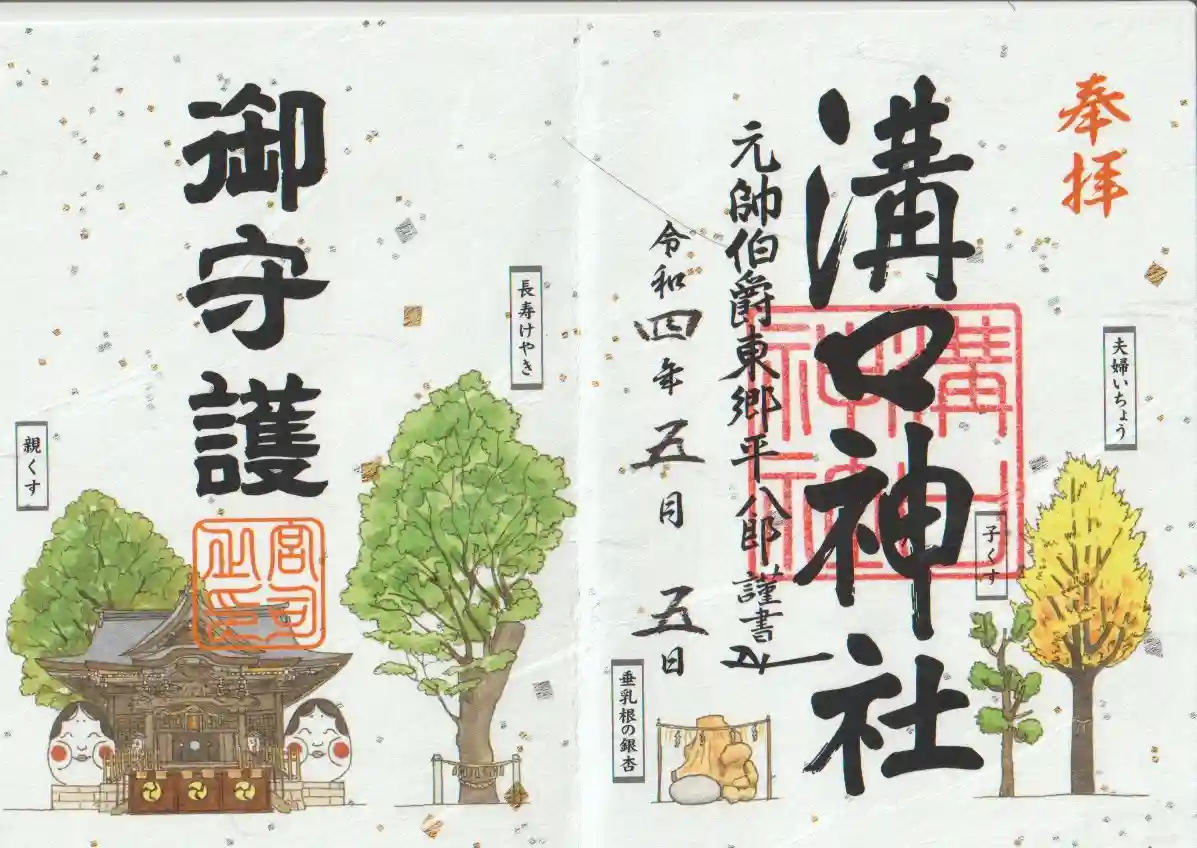 奉拝
夫婦いちょう
溝口神社
溝口神社
子くす
元帥伯爵東郷平八郎謹書
令和四年五月五日
垂乳根の銀杏
長寿けやき
御守護
宮司
親くす